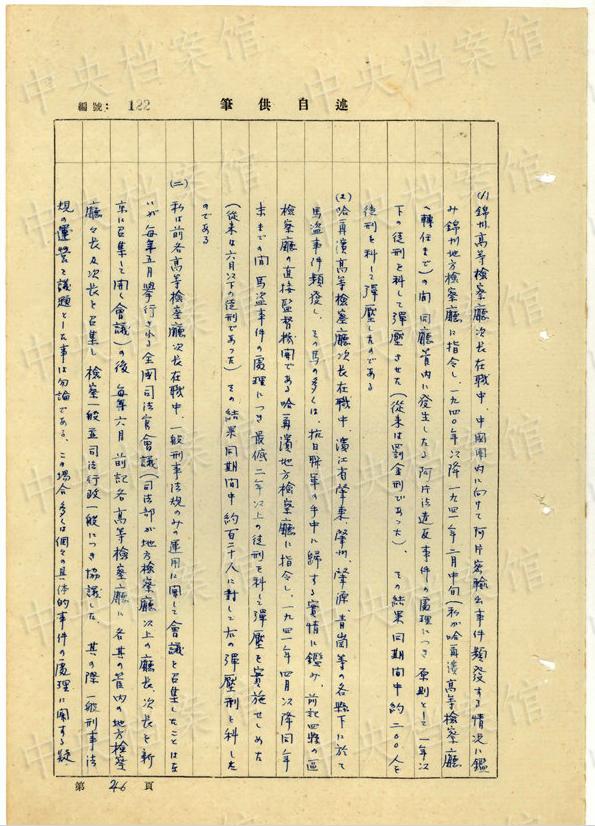 編號: 122
述自供筆
(1) 錦州高等檢察廳次長在職中、中國関内に向けて阿片密輸出事件類発する情況に鑑
み錦州地方檢察廳に指令し、一九四〇年以降一九四一年二月中旬(私が哈爾濱高等檢察廳
へ轉任まで)の間同廳管内に發生したる阿片法違反事件の處理につき原則として一年以
下の徒刑を科して彈壓させた(從来は罰金刑であった)、その結果同期間中約二〇〇人を
徒刑を科して彈壓したのである
(2) 哈爾濱高等檢察廳次長在職中、濱江省肇東、肇州、肇源、青崗等の各縣下に於て
馬盗事件類發し、その馬の多くは、抗日聯軍の手中に歸する實情に鑑み、前記四縣の區
檢察廳の直接監督機関である哈爾濱地方檢察廳に指令し、一九四一年四月以降同年
末までの間馬盗事件の處理につき最低二年以上の徒刑を科して彈壓を實施せしめた
(從来は六月以下の徒刑であった)その結果同期間中約百二十人に對して右の彈壓刑を科した
のである
(二) 私は前各高等檢察廳次長在職中、一般刑事法規のみの運用に関して會議を召集したことはな
いが毎年五月擧行される全國司法官會議(司法部が地方檢察廳次長以上の廳長、次長を新
京に召集して開く會議)の後毎年六月前記各高等檢察廳に各其の管内の地方檢察
廳々長及次長を召集し檢察一般並司法行政一般につき協議した、其の際一般刑事法
規の運營を議題とした事は勿論である、この場合多くは個々の具体的事件の處理に関する疑
第 26 頁
中央档案馆